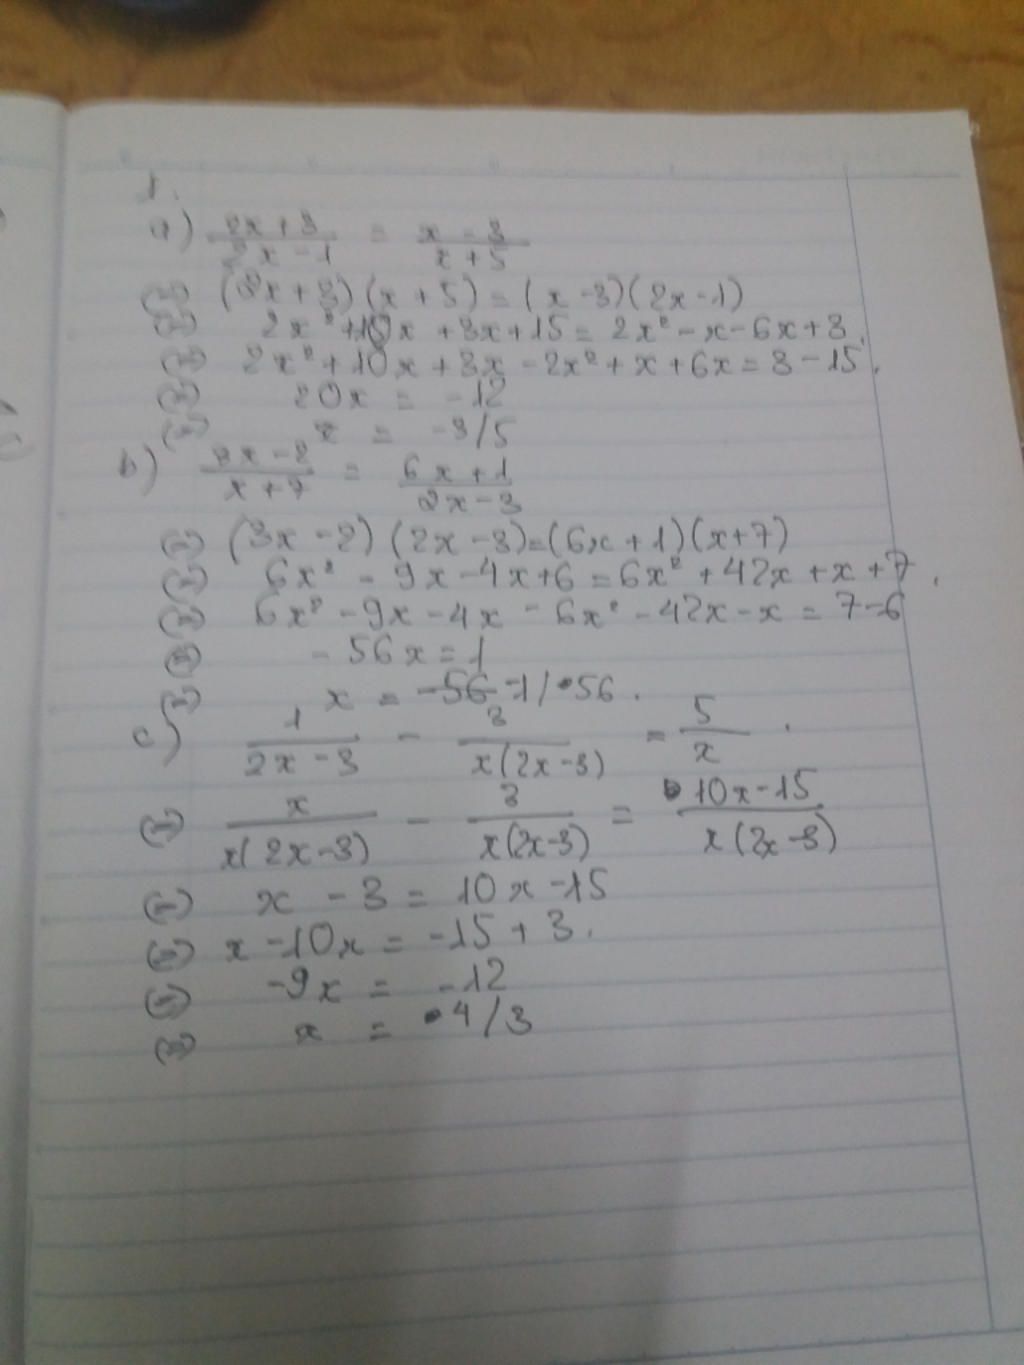 1.
a) (2x+3)/(2x-1) = (x-3)/(x+5)
(=) (2x+3)(x+5)=(x-3)(2x-1)
(=) 2x²+10x+3x+15=2x²-x-6x+3
(=) 2x²+10x+3x-2x²+x+6x=3-15.
(=) 20x = -12
(=) x = -3/5
b) (3x-2)/(x+7) = (6x+1)/(2x-3)
(=) (3x-2)(2x-3)=(6x+1)(x+7)
(=) 6x²-9x-4x+6=6x²+42x+x+7.
(=) 6x²-9x-4x-6x²-42x-x=7-6
(=) -56x=1
(=) x = -56 -1/56.
c) 1/(2x-3) - 3/(x(2x-3)) = 5/x.
(=) x/(x(2x-3)) - 3/(x(2x-3)) = (10x-15)/(x(2x-3))
(=) x-3=10x-15
(=) x-10x=-15+3.
(=) -9x = -12
(=) x = 4/3